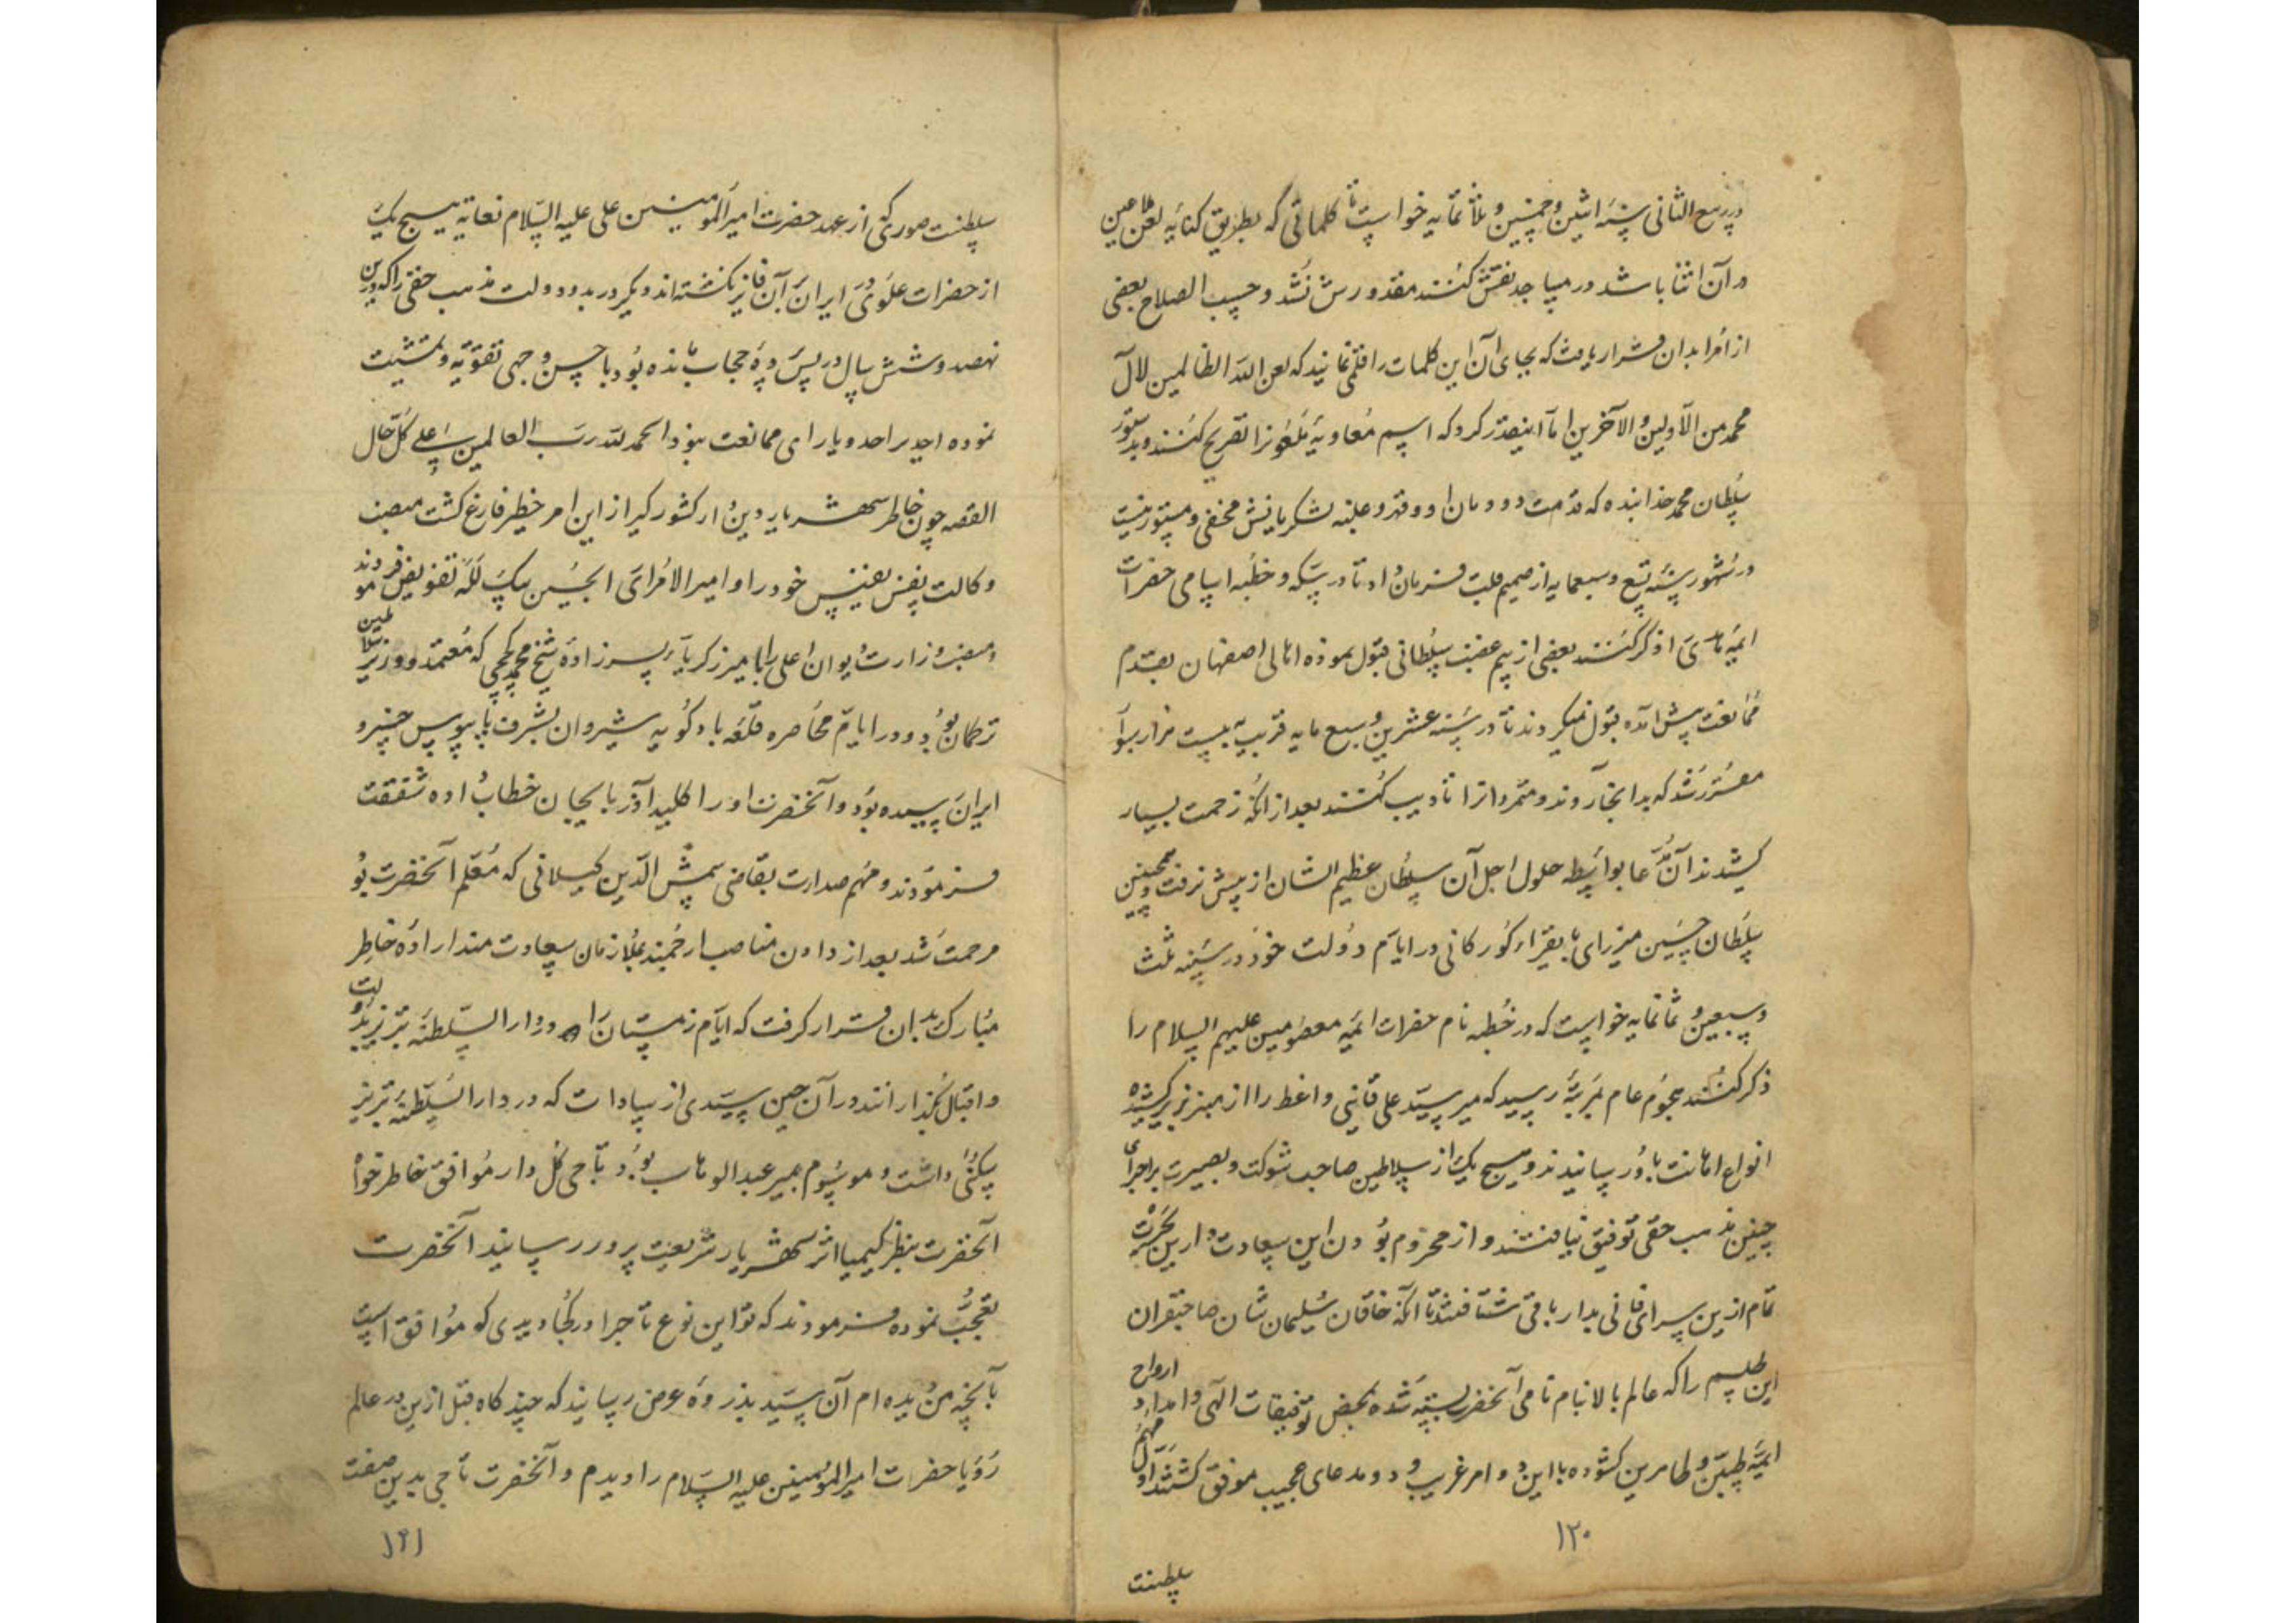 در ربیع الثانی سنه اثنین و خمسین و ثلاثمایه خواست تا کلماتی که بطریق کنایه لعن ملاعین
در آن اثنا باشد در مساجد نقش کنند مقدورش نشد و حسب الصلاح بعضی
از امرا بدان قرار یافت که بجای آن این کلمات را قلمی نمایند که لعن الله الظالمین لآل
محمد من الاولین و الآخرین اما اینقدر کرد که اسم معاویهٔ ملعون را تصریح کنند و بدستور
سلطان محمد خدابنده که قدمت دودمان او وفتر و غلبه لشکریانش مخفی و مستور نیست
در شهور سنه تسع و سبعمایه از صمیم قلب فرمان داد تا در سکه و خطبه اسامی حضرات
ایمه هدی را ذکر کنند بعضی از بیم غضب سلطانی قبول نموده اهالی اصفهان بقدم
ممانعت پیش آمده قبول نمیکردند تا در سنه عشرین و سبع مایه قریب به بیست هزار سوار
مقرر شد که بدانجا روند و متمردانرا تادیب کنند بعد از آنکه زحمت بسیار
کشیدند آن مدعا بواسطه حلول اجل آن سلطان عظیم الشان از پیش نرفت و همچنین
سلطان حسین میرزای بایقراء کورکانی در ایام دولت خود در سنه ثلث
و سبعین و ثمانمایه خواست که در خطبه نام حضرات ایمه معصومین علیهم السلام را
ذکر کنند هجوم عام بمرتبهٔ رسید که میر سید علی قاینی واعظ را از منبر بزیر کشیده
انواع اهانت باو رسانیدند و هیچ یک از سلاطین صاحب شوکت و بصیرت بر اجرای
چنین مذهب حقی توفیق نیافتند و از محروم بودن این سعادت دارین بحسرت
تمام ازین سرای فانی بدار باقی شتافتند تا آنکه خاقان سلیمان شان صاحبقران
این طلسم را که عالم بالا بنام نامی آنحضرت بسته شده بمحض توفیقات الهی و امداد ارواح
ایمهٔ طیبین و طاهرین کشوده با این دو امر غریب و دو مدعای عجیب موفق کشتند اول مهم
۱۲۰
سلطنت
سلطنت صوری که از عهد حضرت امیر المومنین علی علیه السلام تغایة هیچ یک
از حضرات علوی در ایران بآن فایز نکشته اند و دیگر در بدو دولت مذهب حقی را که درین
نهصد و شش سال در پس پردهٔ حجاب مانده بود با حسن وجهی تقویه و تمشیت
نموده احدیرا حد و یارای ممانعت نبود الحمد لله رب العالمین علی کل حال
القصه چون خاطر شهریار دیندار کشورکیر از این امر خطیر فارغ کشت منصب
وکالت نفس نفیس خود را و امیر الامرای ابحسین بیک لله تفویض فرمودند
و منصب وزارت دیوان اعلی را بامیر زکریا پسرزادهٔ شیخ محمد کججی که معتمد و وزیر سلاطین
ترکمان بود و در ایام محاصره قلعه بادکویه شیروان بشرف پابوس خسرو
ایران رسیده بود و آنحضرت او را کلید آذربایجان خطاب داده شفقت
فرمودند و مهم صدارت بقاضی شمس الدین کیلانی که معلم آنحضرت بود
مرحمت شد بعد از دادن مناصب ارجمند بملازمان سعادت مند ارادهٔ خاطر
مبارک بدان قرار کرفت که ایام زمستان را در دار السلطنه تبریز بدولت
و اقبال بگذرانند در آن حین سیدی از سادات که در دار السلطنه تبریز
سکنی داشت و موسوم بمیر عبد الوهاب بود تاجی کل دار موافق خاطر خواه
آنحضرت بنظر کیمیا اثر شهریار شریعت پرور رسانید آنحضرت
تعجب نموده فرمودند که تو این نوع تاج را در کجا دیدی که موافق است
بآنچه من دیده ام آن سید بذروهٔ عرض رسانید که چند کاه قبل ازین در عالم
رؤیا حضرت امیر المومنین علیه السلام را دیدم و آنحضرت تاجی بدین صفت
۱۲۱